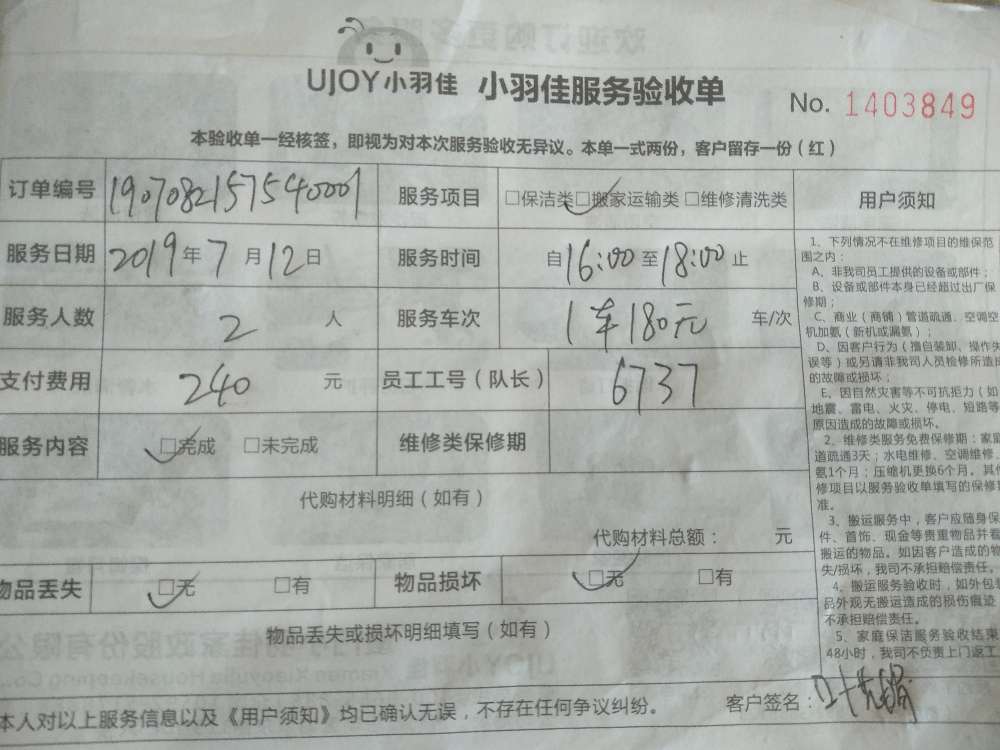 UJOY小羽佳 小羽佳服务验收单 No. 1403849
本验收单一经核签，即视为对本次服务验收无异议。本单一式两份，客户留存一份（红）
订单编号 1907082157540001 服务项目 □保洁类 □搬家运输类 □维修清洗类 用户须知
服务日期 2019年7月12日 服务时间 自16:00至18:00止
服务人数 2 人 服务车次 1车180元 车/次
支付费用 240 元 员工工号（队长） 6737
服务内容 □完成 □未完成 维修类保修期
代购材料明细（如有）
代购材料总额： 元
物品丢失 □无 □有 物品损坏 □无 □有
物品丢失或损坏明细填写（如有）
本人对以上服务信息以及《用户须知》均已确认无误，不存在任何争议纠纷。 客户签名：
1、下列情况不在维修项目的维保范
围之内：
A、非我司员工提供的设备或部件；
B、设备或部件本身已经超过出厂保
修期；
C、商业（商铺）管道疏通、空调空
机加氨（新机或漏氨）；
D、因客户行为（擅自装卸、操作失
误等）或另请非我司人员检修所造成
的故障或损坏；
E、因自然灾害等不可抗拒力（如
地震、雷电、火灾、停电、短路等
原因造成的故障或损坏。
2、维修类服务免费保修期：家庭
道疏通3天；水电维修、空调维修、
氨1个月；压缩机更换6个月。其他
修项目以服务验收单填写的保修期
准。
3、搬运服务中，客户应随身保
件、首饰、现金等贵重物品并看
搬运的物品。如因客户造成的物
失/损坏，我司不承担赔偿责任。
4、搬运服务验收时，如外包装
品外观无搬运造成的损伤痕迹
不承担赔偿责任。
5、家庭保洁服务验收结束
48小时，我司不负责上门返工